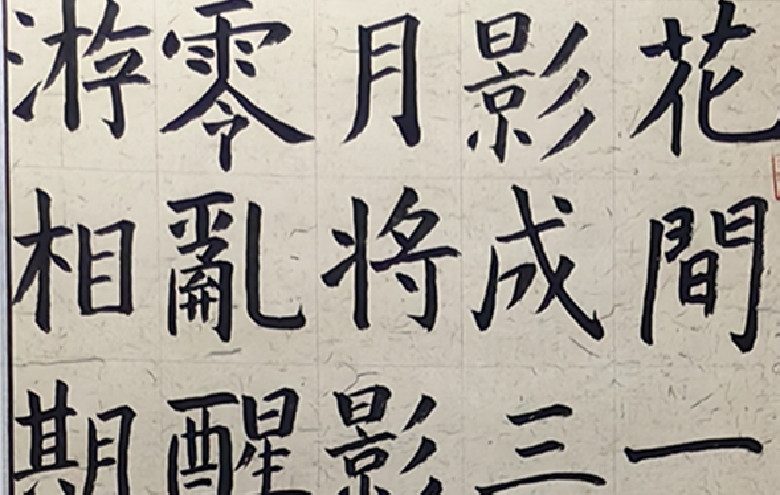 花間一
影成三
月将影
零亂醒
游相期